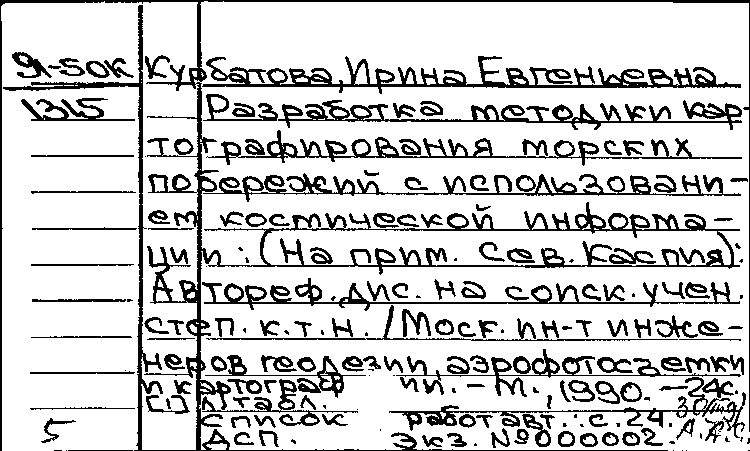 91-50К Курбатова, Ирина Евгеньевна
1315 Разработка методики кар-
тографирования морских
побережий с использовани-
ем космической информа-
ции: (На прим. Сев. Каспия):
Автореф. дис. на соиск. учен.
степ. к.т.н. / Моск. ин-т инже-
неров геодезии, аэрофотосъемки
и картограф ии. - М., 1990. - 24с.
[1] л. табл.
5 список работ авт.: с. 24.
ДСП. Экз. №000002. А.А.С.